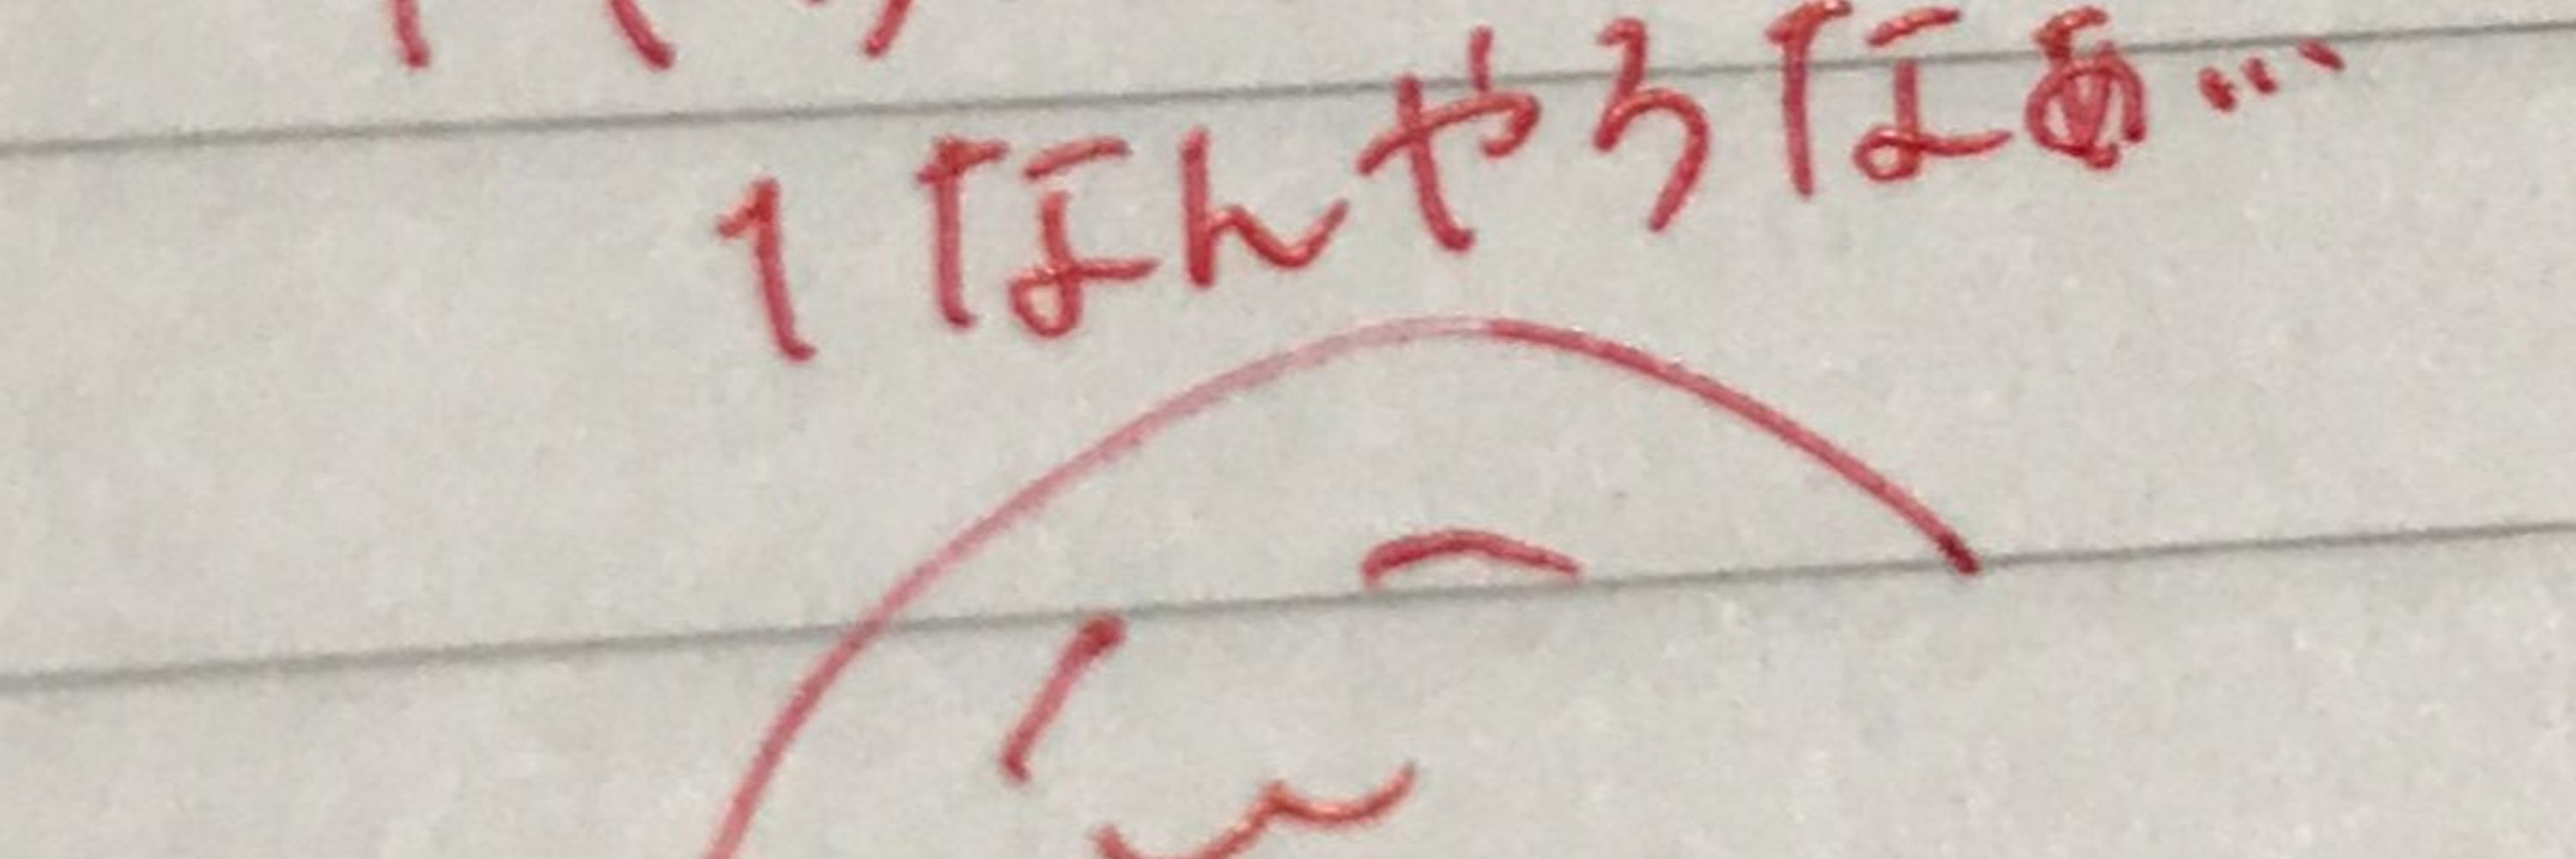 1 なんやろなぁ…